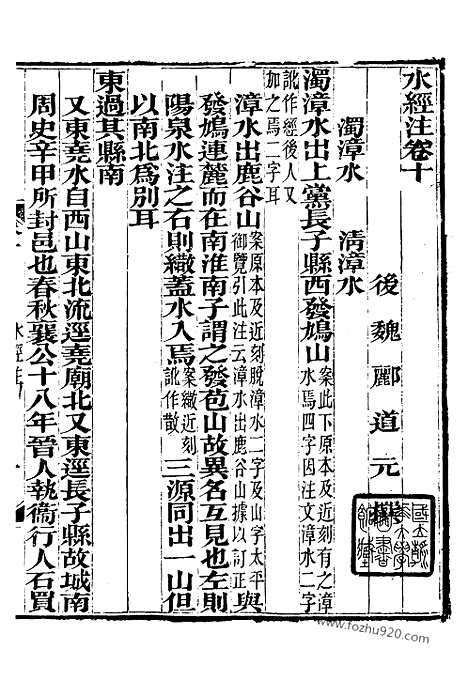 水經注卷十
後魏酈道元撰
濁漳水　清漳水
濁漳水出上黨長子縣西發鳩山案此下原本及近刻有之漳水焉四字因注文漳水二字
訛作經後人又加之焉二字耳
漳水出鹿谷山案原本及近刻脫漳水二字及山字太平御覽引此注云漳水出鹿谷山據以訂正與
發鳩連麓而在南淮南子謂之發苞山故異名互見也左則
陽泉水注之右則繖蓋水入焉案繖近刻訛作散三源同出一山但
以南北爲別耳
東過其縣南
又東堯水自西山東北流逕堯廟北又東逕長子縣故城南
周史辛甲所封邑也春秋襄公十八年晉人執衞行人石買
水經注
www.fozhu920.com